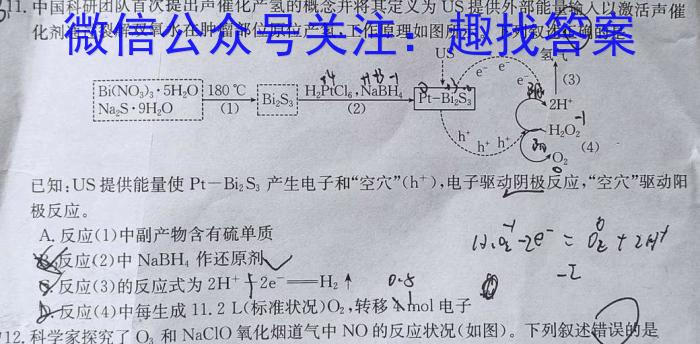 11. 中国科研团队首次提出声催化产氢的概念并将其定义为 US 提供外部能量输入以激活声催
微信公众号关注：趣找答案
US
e⁻
e⁻
e⁻
氢气
(3)
Bi(NO₃)₃·5H₂O
Na₂S·9H₂O
180 ℃
(1)
Bi₂S₃
H₂PtCl₆,NaBH₄
(2)
Pt-Bi₂S₃
2H⁺
H₂O₂
(4)
O₂
h⁺
h⁺
h⁺
已知:US 提供能量使 Pt-Bi₂S₃ 产生电子和“空穴”(h⁺),电子驱动阴极反应,“空穴”驱动阳
极反应。
A. 反应(1)中副产物含有硫单质
B. 反应(2)中 NaBH₄ 作还原剂
C. 反应(3)的反应式为 2H⁺+2e⁻══H₂↑
D. 反应(4)中每生成 11.2 L(标准状况)O₂,转移 1 mol 电子
H₂O₂-2e⁻ = O₂+2H⁺
12. 科学家探究了 O₃ 和 NaClO 氧化烟道气中 NO 的反应状况(如图)。下列叙述错误的是